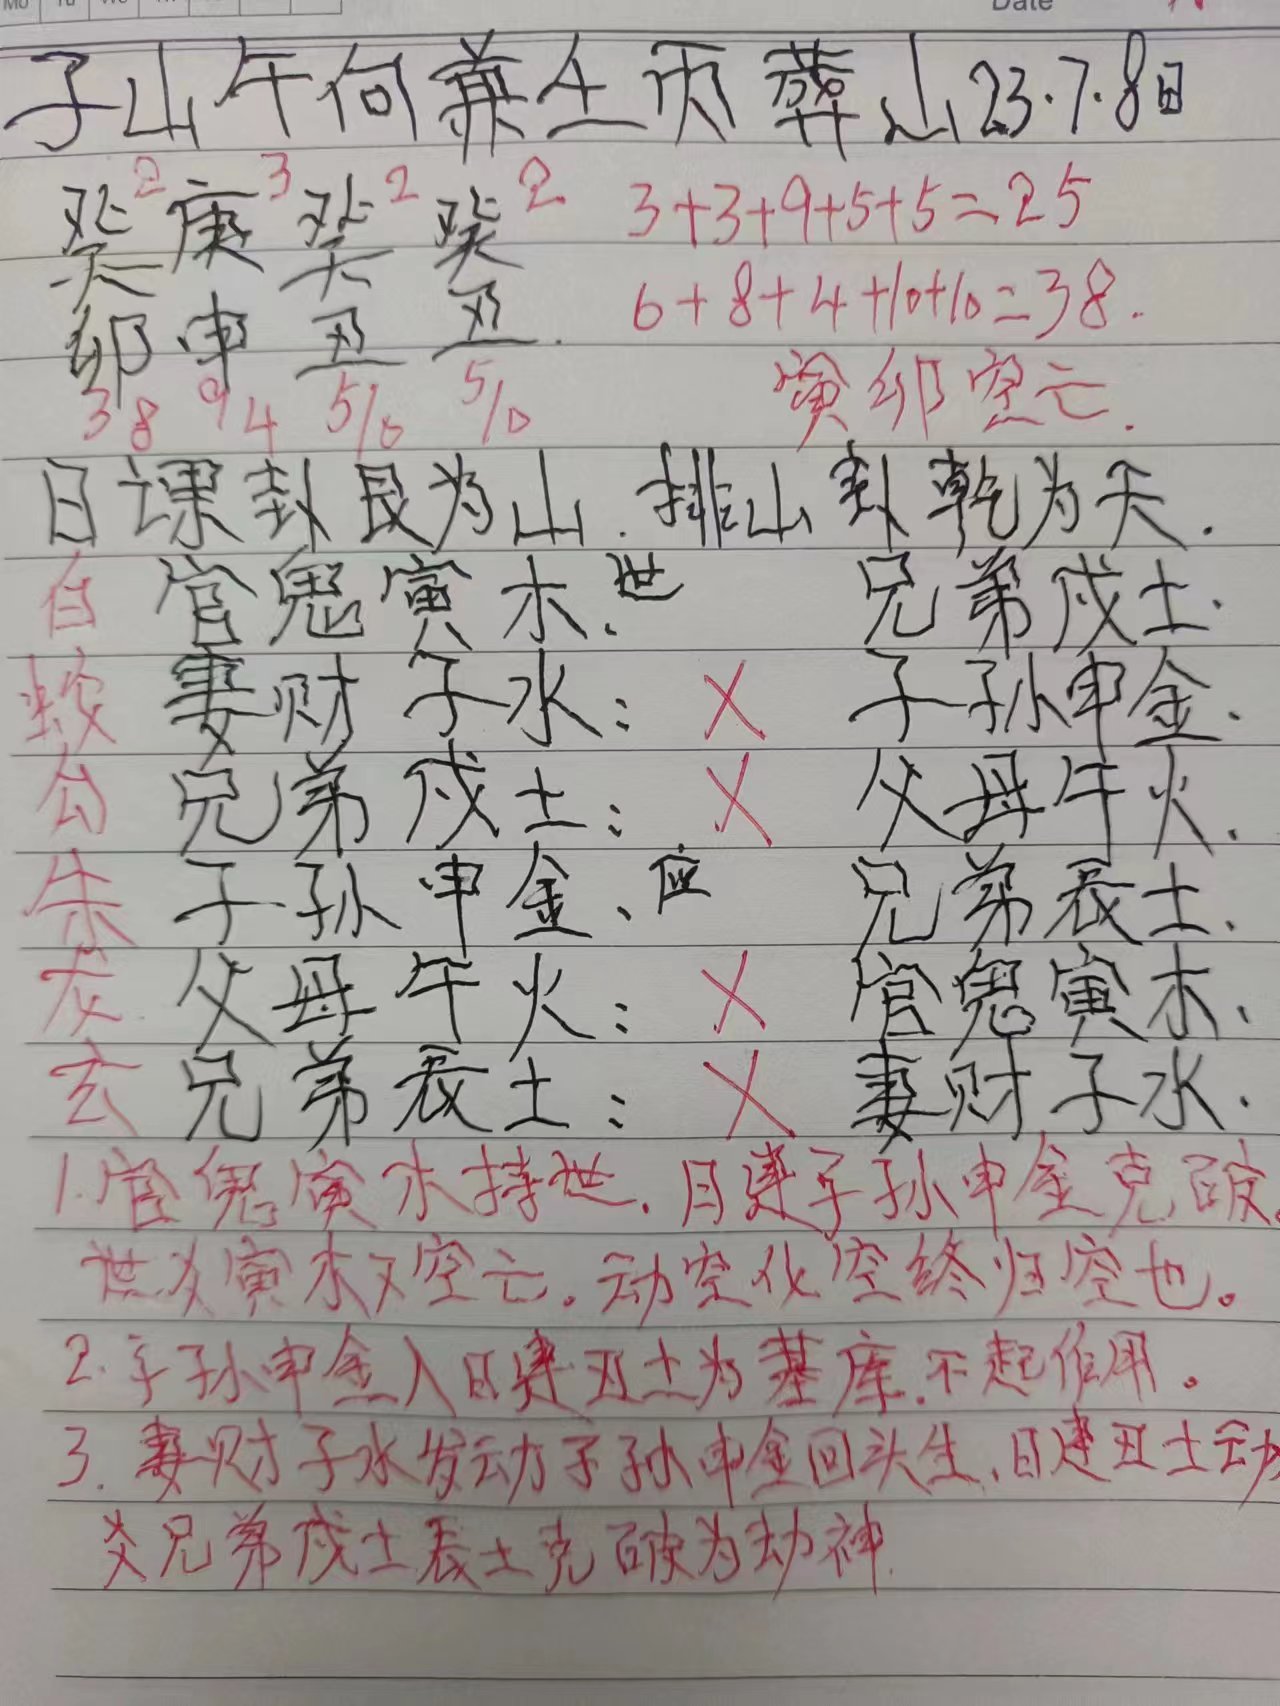 Mo Tu We Th Date
子山午向兼壬丙葬山23.7.8日
癸2 庚3 癸2 癸2 3+3+9+5+5=25
卯 申 丑 丑. 6+8+4+10+10=38.
38 94 5/10 5/10 寅卯空亡.
日课卦艮为山.排山卦乾为天.
白 官鬼寅木、世 兄弟戌土.
蛇 妻财子水: X 子孙申金.
勾 兄弟戌土: X 父母午火.
朱 子孙申金、应 兄弟辰土.
龙 父母午火: X 官鬼寅木、
玄 兄弟辰土: X 妻财子水.
1.官鬼寅木持世.月建子孙申金克破。
世爻寅木又空亡。动空化空终归空也。
2.子孙申金入日建丑土为墓库.不起作用。
3.妻财子水发动子孙申金回头生、日建丑土动
爻兄弟戌土辰土克破为劫神.